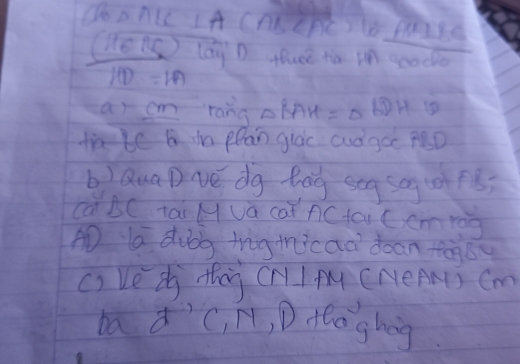 Cho △ ABC ⊥ A (AB < AC) kẻ AH ⊥ BC
(H ∈ BC) lấy D thuộc tia HA sao cho
HD = HA
a) cm rằng △ BAH = △ BDH và
tia BC là tia phân giác của góc ABD
b) Qua D vẽ đg thẳng sog sog với AB,
cắt BC tại M và cắt AC tại C cm rằng
AD là đường trug trực của đoạn thẳng
c) Vẽ đg thẳng CN ⊥ AM (N ∈ AM) Cm
ba đ' C, N, D thẳg hàg